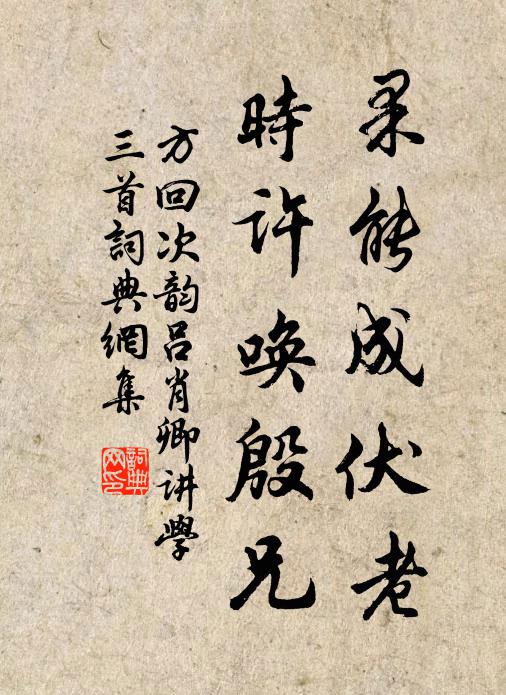 果能成伏老
時许唤殷兄
方回次韵吕肖卿讲學
三首詞典網集
詞典網印